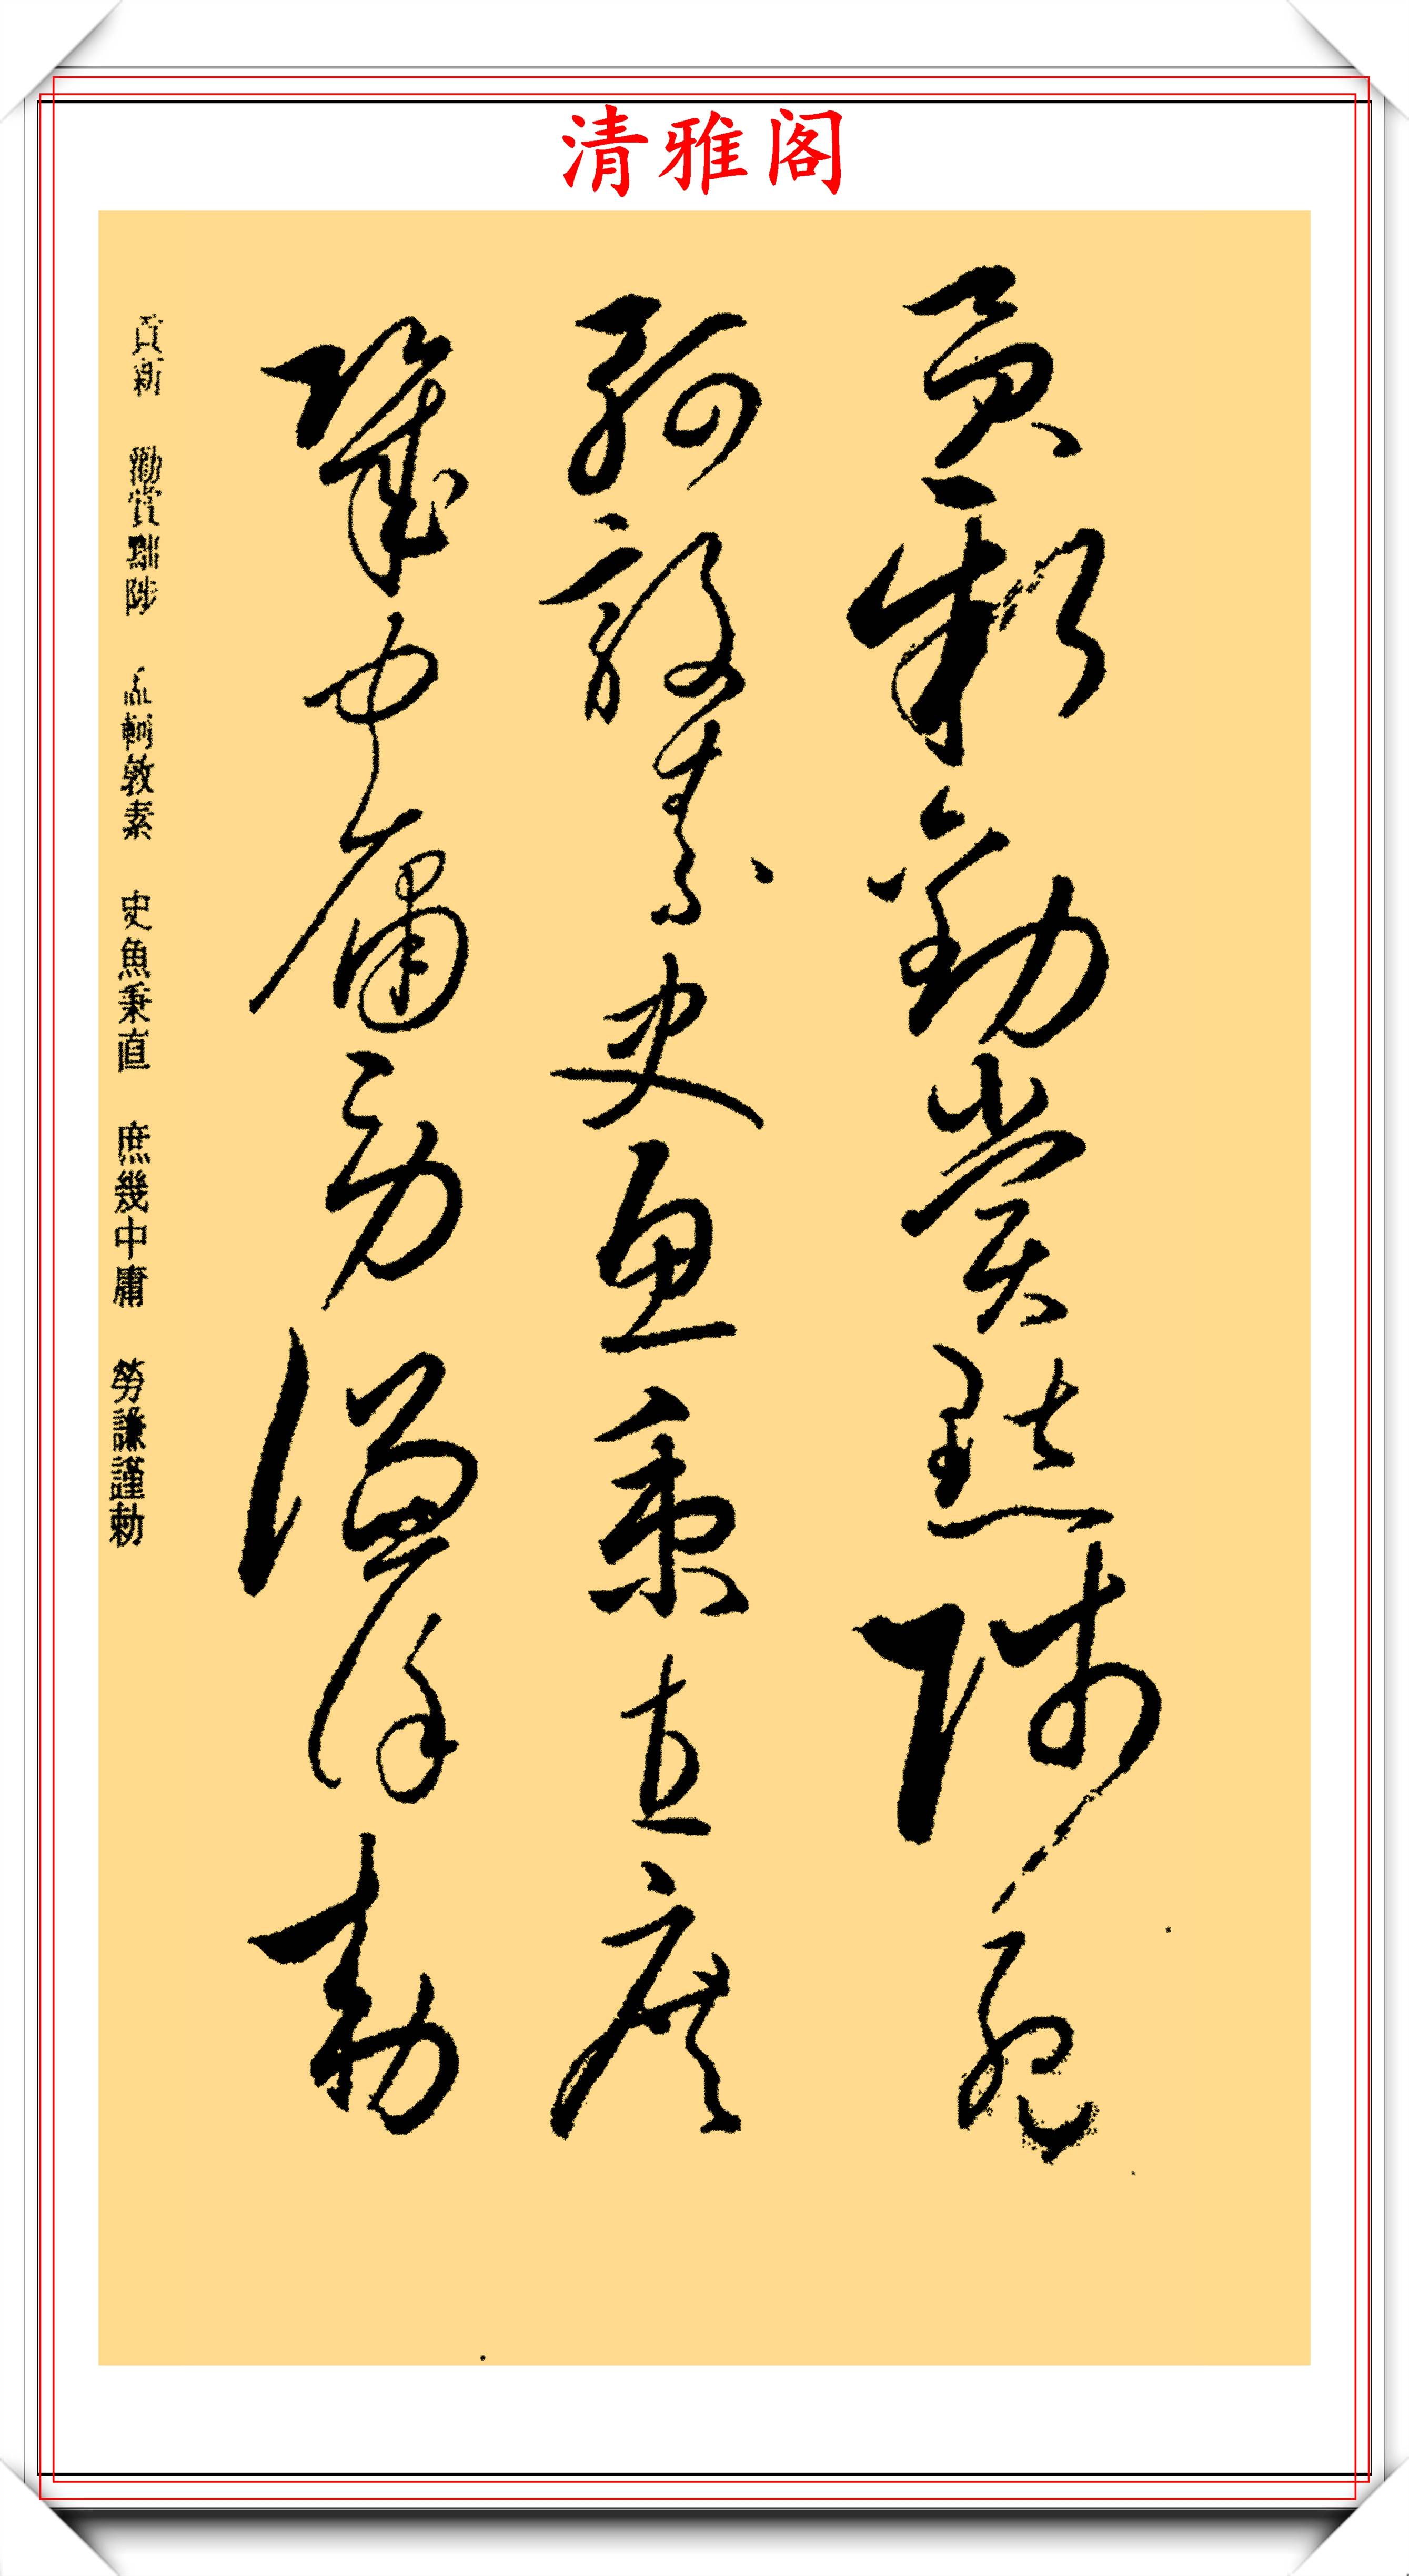 清雅阁
貢新勸賞黜陟孟
軻敦素史魚秉直庶
幾中庸勞謙謹勅
貢新 勸賞黜陟 孟軻敦素 史魚秉直 庶幾中庸 勞謙謹勅